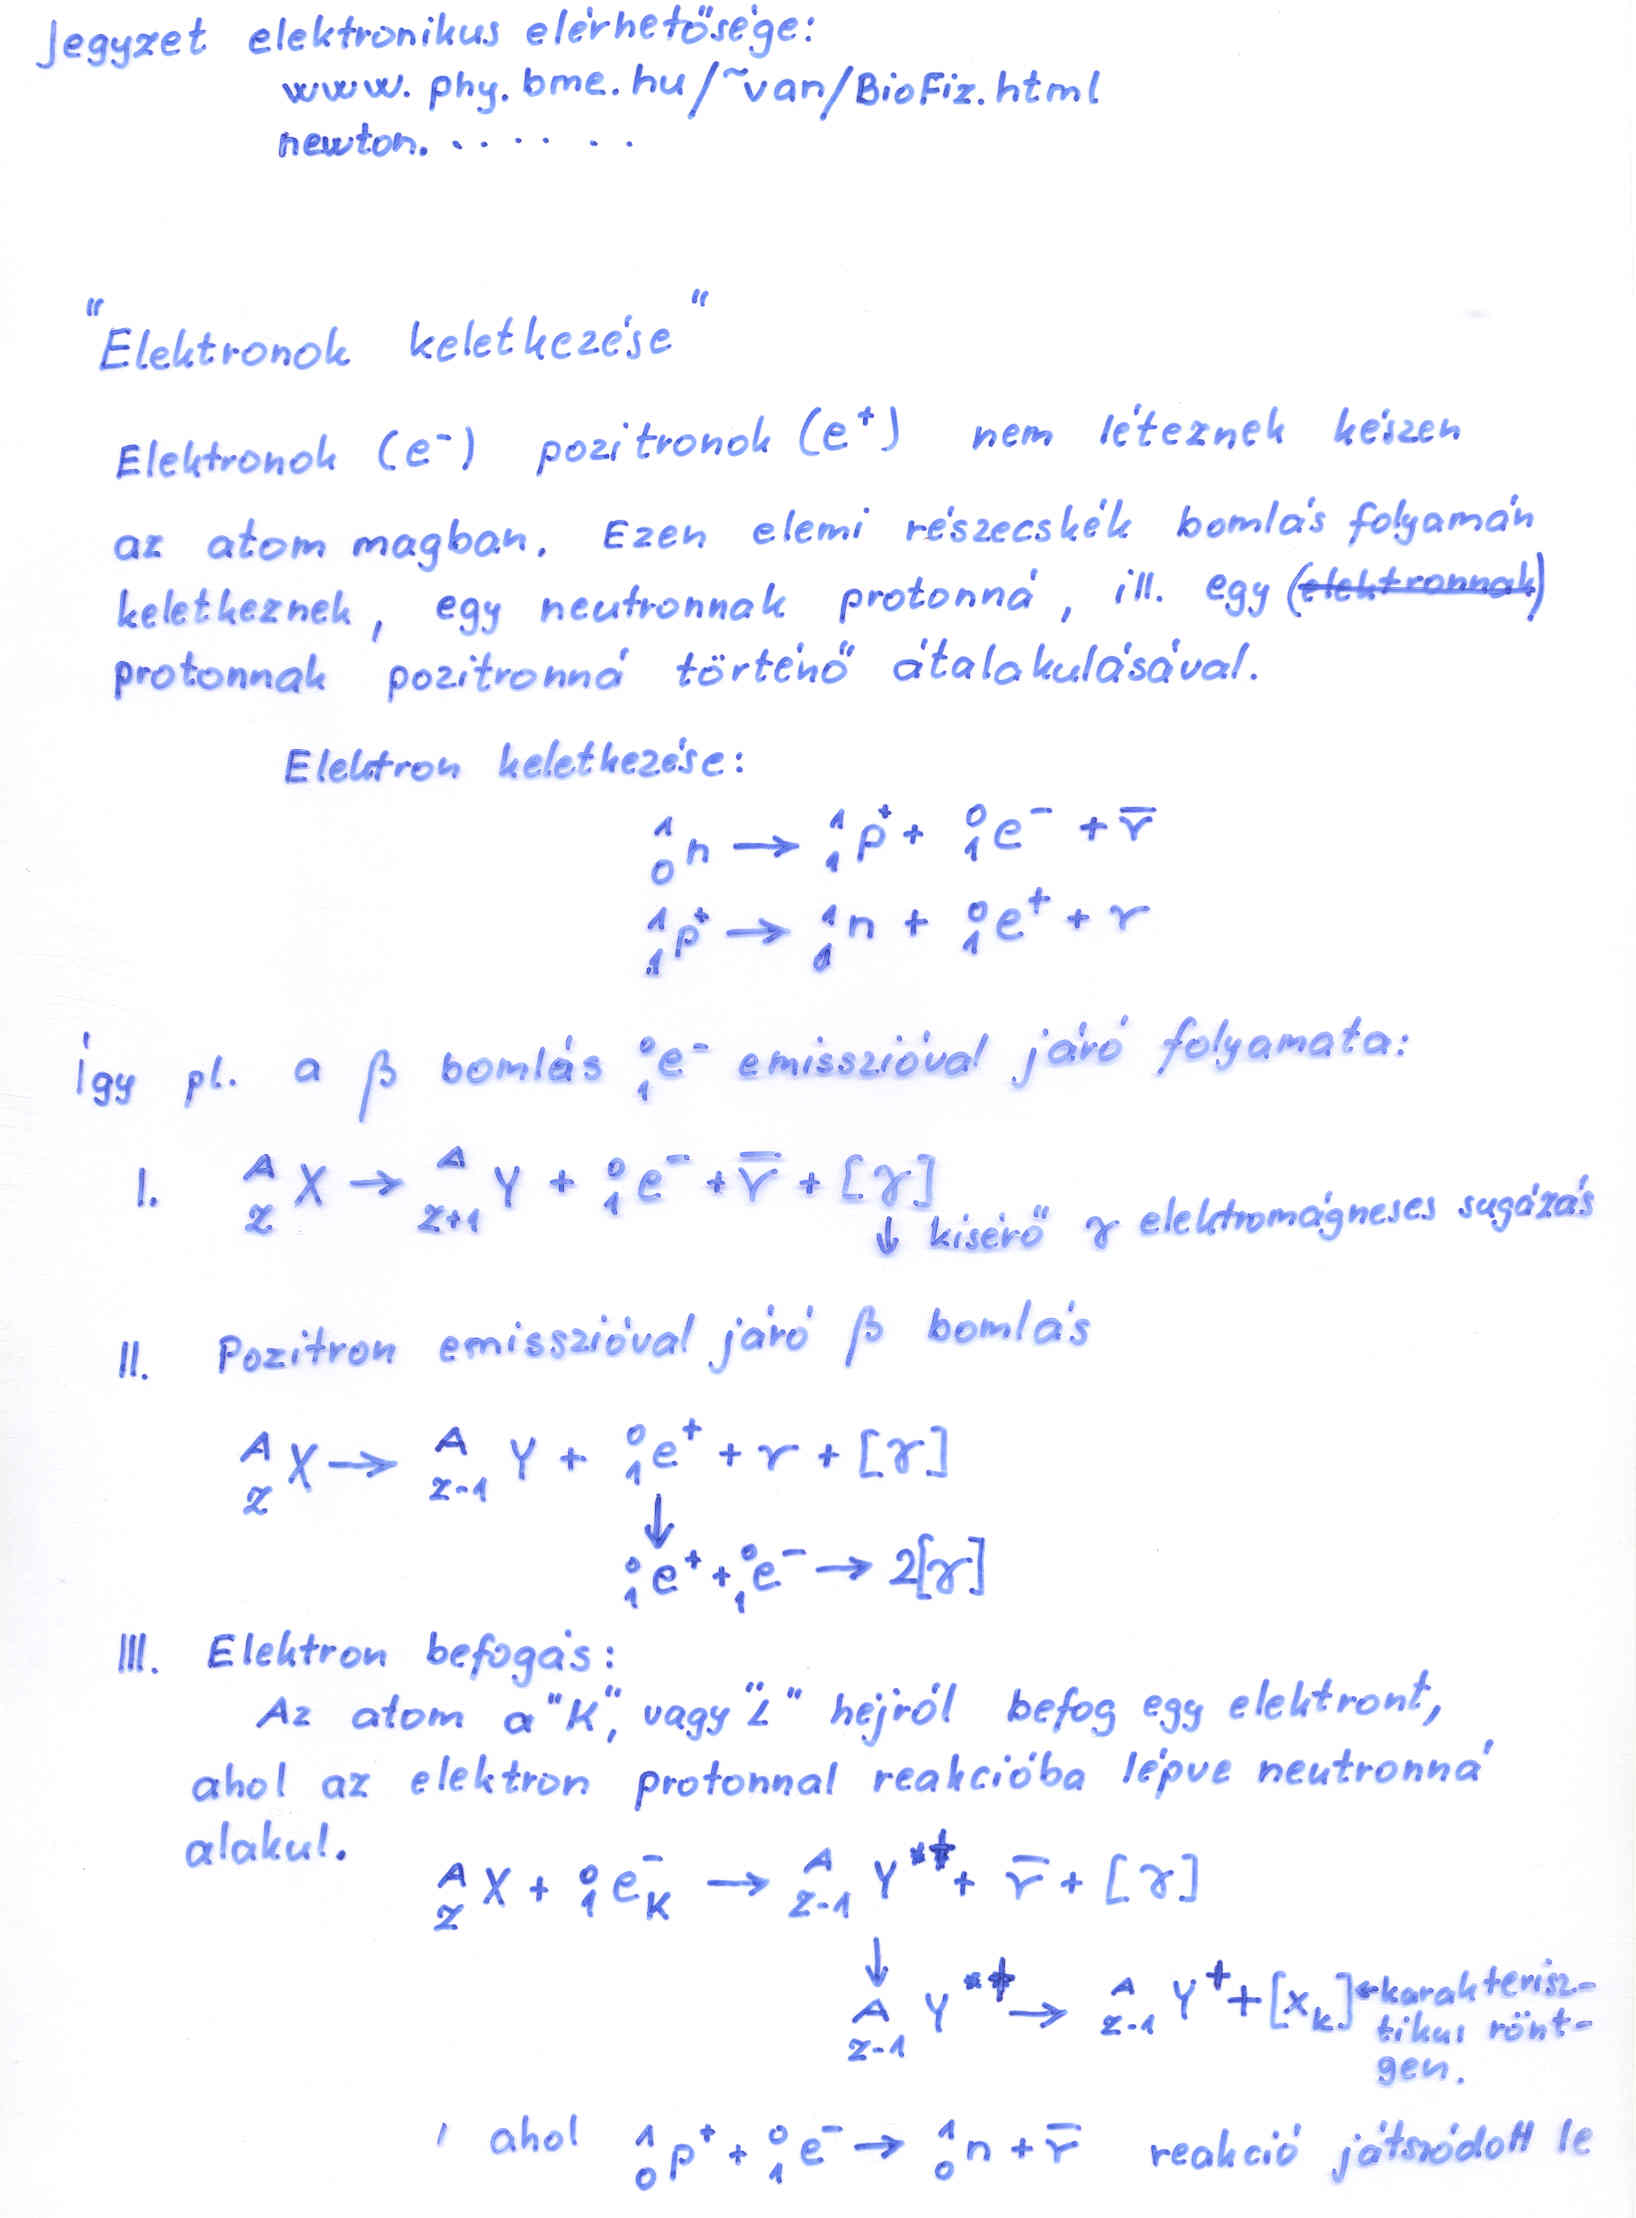 Jegyzet elektronikus elérhetősége:
www.phy.bme.hu/~van/BioFiz.html
newton. . . . . . .
"Elektronok keletkezése"
Elektronok (e⁻) pozitronok (e⁺) nem léteznek készen
az atom magban. Ezen elemi részecskék bomlás folyamán
keletkeznek, egy neutronnak protonná, ill. egy (elektronnak)
protonnak pozitronná történő átalakulásával.
Elektron keletkezése:
¹₀n → ¹₁p⁺ + ⁰₁e⁻ + ν̅
¹₁p⁺ → ¹₀n + ⁰₁e⁺ + ν
Így pl. a β bomlás ⁰₁e⁻ emisszióval járó folyamata:
I. ᴬ_Z X → ᴬ_Z+1 Y + ⁰₁e⁻ + ν̅ + [γ]
↓ kisérő γ elektromágneses sugázás
II. Pozitron emisszióval járó β bomlás
ᴬ_Z X → ᴬ_Z-1 Y + ⁰₁e⁺ + ν + [γ]
↓
⁰₁e⁺ + ⁰₁e⁻ → 2[γ]
III. Elektron befogás:
Az atom a "K", vagy "L" héjról befog egy elektront,
ahol az elektron protonnal reakcióba lépve neutronná
alakul.
ᴬ_Z X + ⁰₁e⁻_K → ᴬ_Z-1 Y*⁺ + ν̅ + [γ]
↓
ᴬ_Z-1 Y*⁺ → ᴬ_Z-1 Y⁺ + [x_K] ← karakterisz-
tikus rönt-
gen.
, ahol ¹₀p⁺ + ⁰₁e⁻ → ¹₀n + ν̅ reakció játszódott le